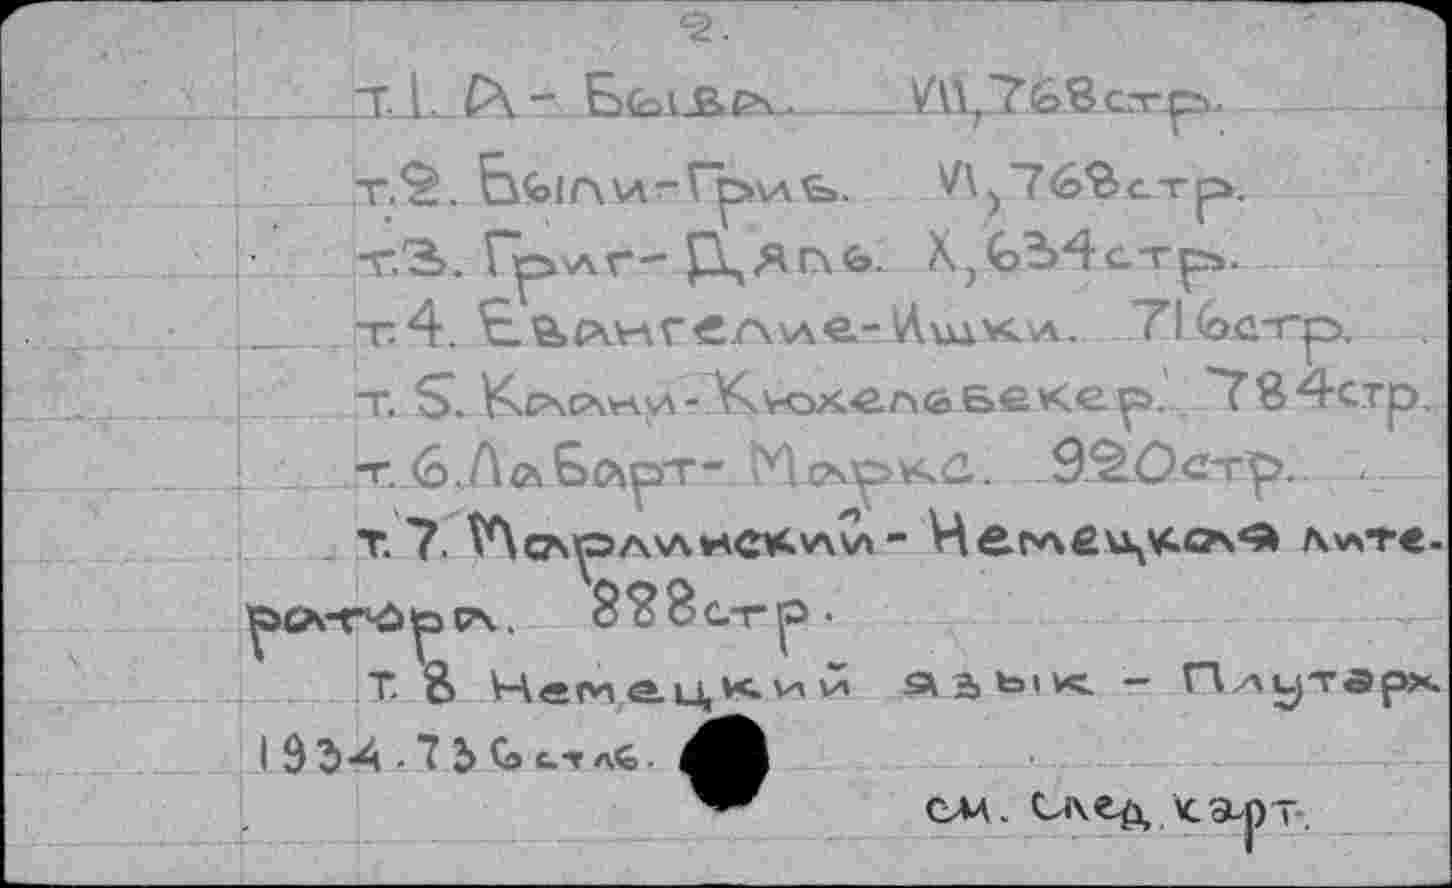 2.
т.1. А - Бывк. VII, 768 стр.
т.2. Были-Гриб. VI, 768 стр.
т.3. Григ - Дять. X, 634 стр.
т.4. Евангелие-Ишки. 716 стр.
т. 5. Каани-Кюхельбекер. 784 стр.
т. 6. Лабарт-Маркс. 920 стр.
т. 7. Марлинский - Немецкая лите-
ратура. 888 стр.
т. 8 Немецкий язык - Плутарх.
1934. 736 стлб.
см. след. карт.